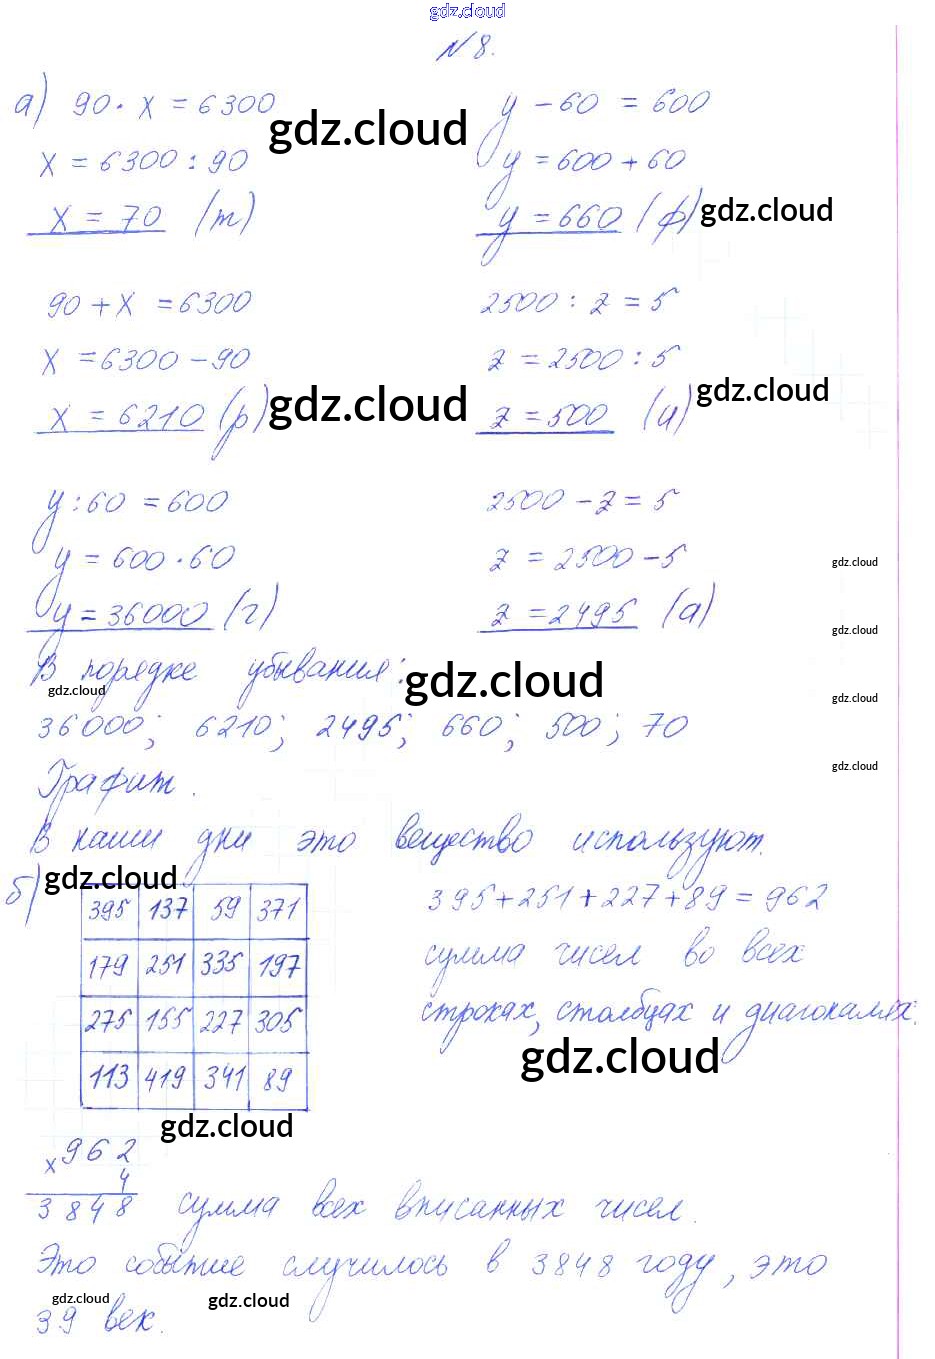 gdz.cloud
№ 8.
а) 90 · x = 6300
x = 6300 : 90
x = 70 (т)
gdz.cloud
y - 60 = 600
y = 600 + 60
y = 660 (ф)
gdz.cloud
90 + x = 6300
x = 6300 - 90
x = 6210 (р)
gdz.cloud
2500 : z = 5
z = 2500 : 5
z = 500 (и)
gdz.cloud
y : 60 = 600
y = 600 · 60
y = 36000 (г)
2500 - z = 5
z = 2500 - 5
z = 2495 (а)
gdz.cloud
gdz.cloud
В порядке убывания:
gdz.cloud
gdz.cloud
gdz.cloud
36000; 6210; 2495; 660; 500; 70
gdz.cloud
Графит.
В наши дни это вещество используют.
б)
gdz.cloud
395 137 59 371
179 251 335 197
275 155 227 305
113 419 341 89
395 + 251 + 227 + 89 = 962
сумма чисел во всех
строках, столбцах и диагоналях.
gdz.cloud
gdz.cloud
x 962
4
3848 сумма всех вписанных чисел.
Это событие случилось в 3848 году, это
gdz.cloud
gdz.cloud
39 век.